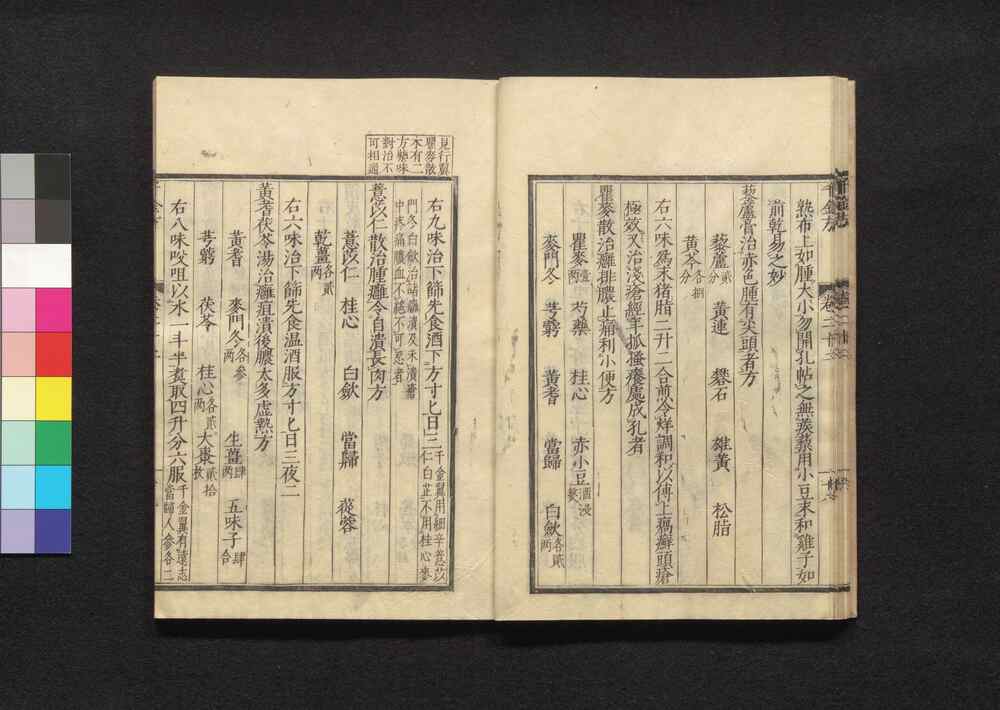 千金方
卷二十二
熱布上如腫大小勿開孔帖之無蕪菁用小豆末和雞子如
前乾易之妙
藜蘆膏治赤色腫有尖頭者方
藜蘆貳分 黃連 礬石 雄黃 松脂
黃芩各捌分
右六味爲末猪脂二升二合煎令烊調和以傅上癬頭瘡
極效又治淺瘡經年抓搔癢處成孔者
瞿麥散治癰排膿止痛利小便方
瞿麥壹兩 芍藥 桂心 赤小豆酒浸熬
麥門冬 芎藭 黃耆 當歸 白斂各貳兩
見行翼
瞿麥散
本有二
方藥味
對治不
可相通
右九味治下篩先食酒下方寸匕日三千金翼用細辛薏苡
仁白芷不用桂心麥
門冬白斂治諸癰潰及未潰瘡
中疼痛膿血不絕不可忍者
薏苡仁散治腫癰令自潰長肉方
薏苡仁 桂心 白斂 當歸 蓯蓉
乾薑各貳兩
右六味治下篩先食温酒服方寸匕日三夜二
黃耆茯苓湯治癰疽潰後膿太多虛熱方
黃耆 麥門冬各參兩 生薑肆兩 五味子肆合
芎藭 茯苓 桂心各貳兩 大棗貳拾枚
右八味㕮咀以水一斗半煑取四升分六服千金翼有遠志
當歸人參各二